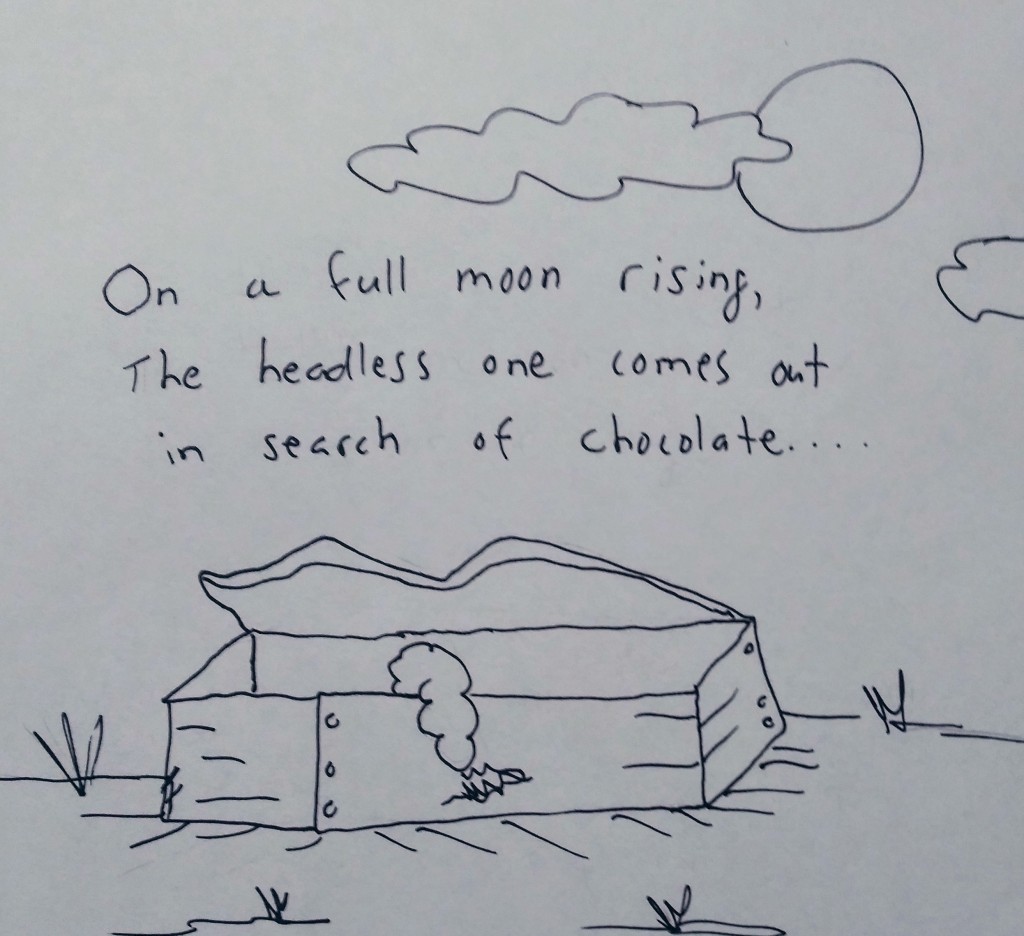 On a full moon rising,
The headless one comes out
in search of chocolate....